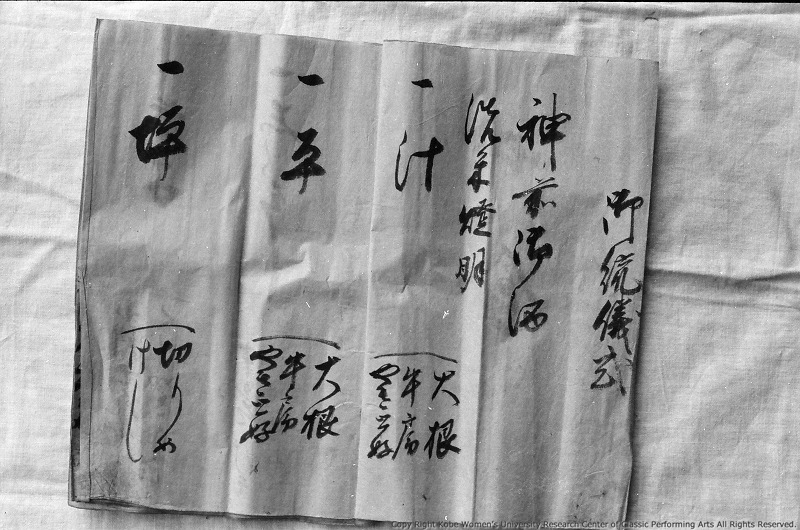 御統儀式
神前御酒
洗米燈明
一汁
大根
牛房
一平
大根
牛房
一坪
Copy Right Kobe Women's University Research Center of Classic Performing Arts All Rights Reserved